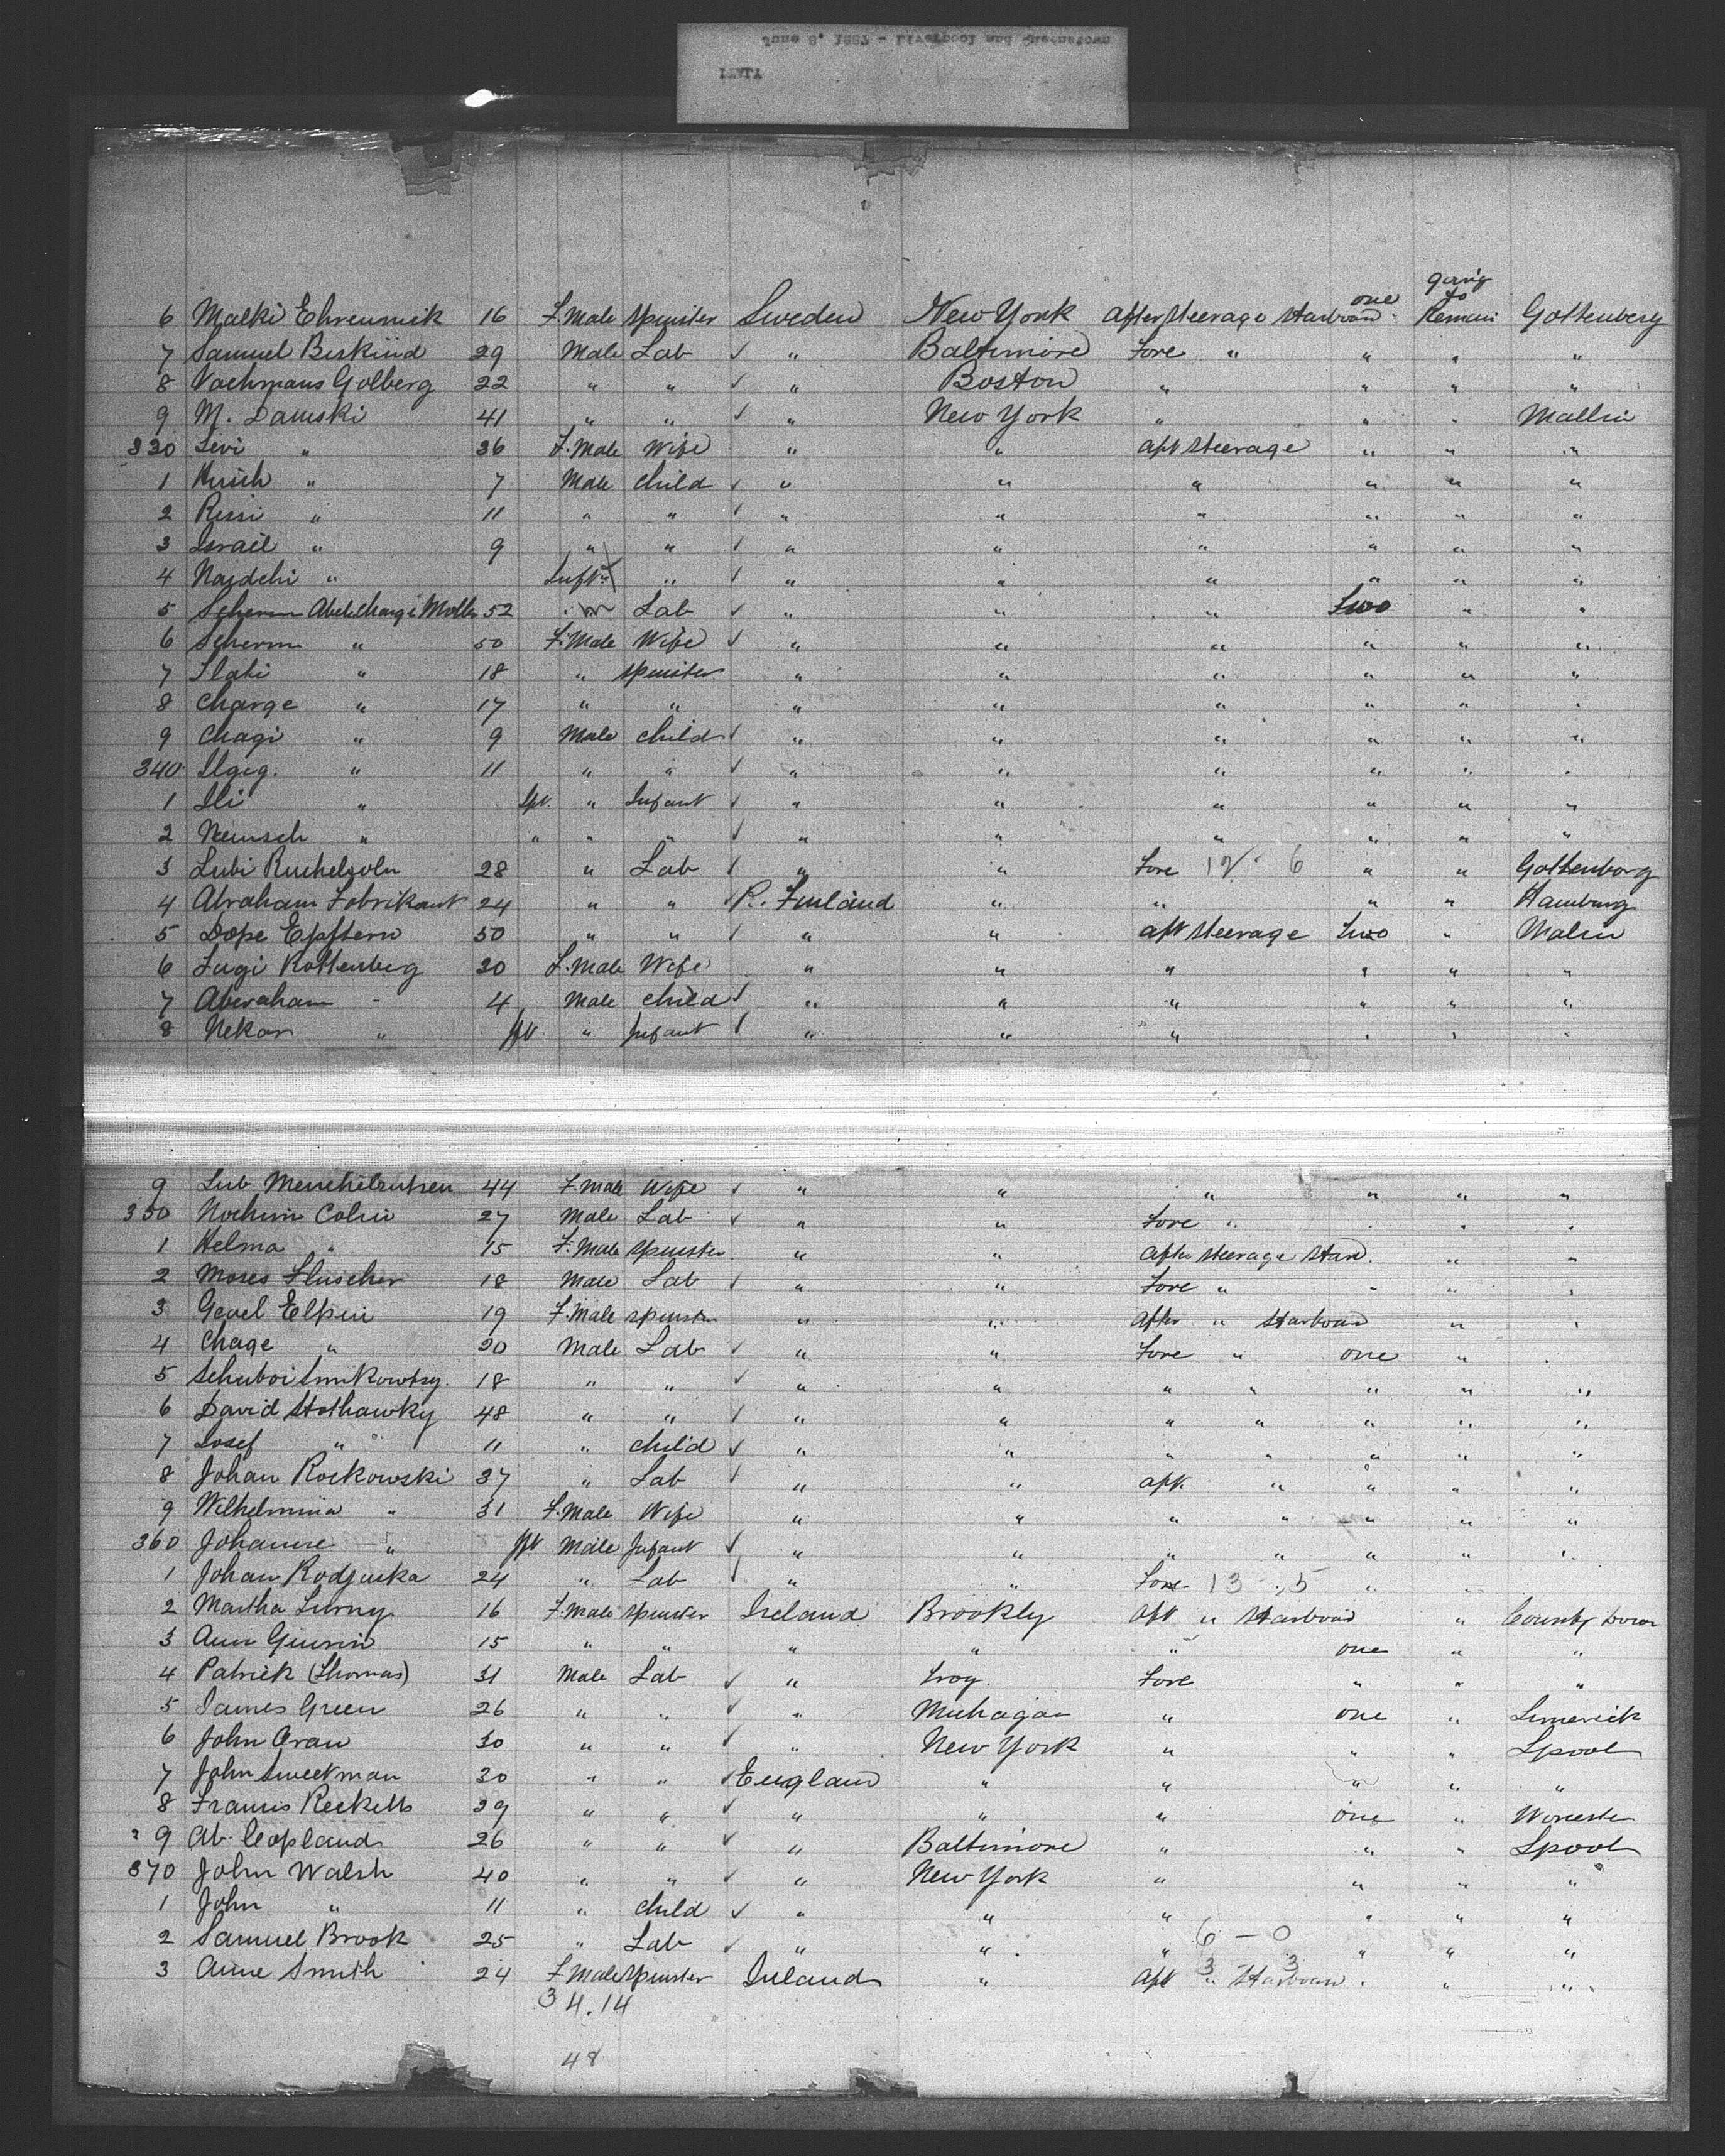 June 8, 1887 - Liverpool and Queenstown
ITALY
going
6 Malki Ehrenmick 16 F.Male Spinster Sweden New York After Steerage Starboard one to Remain Gottenberg
7 Samuel Beskind 29 Male Lab ✓ " Baltimore Fore " " " "
8 Vachmans Golberg 22 " " ✓ " Boston " " " "
9 M. Damski 41 " " ✓ " New York " " " Mallin
330 Levi " 36 F.Male Wife " " aft Steerage " " "
1 Hirsch " 7 Male Child ✓ " " " " " "
2 Rissi " 11 " " ✓ " " " " " "
3 Israil " 9 " " ✓ " " " " " "
4 Najdchi " Inft " ✓ " " " " " "
5 Scherm Abelchargi Moller 52 Lab ✓ " " " Two " "
6 Scherm " 50 F.Male Wife ✓ " " " " " "
7 Slati " 18 " Spinster " " " " " "
8 Charge " 17 " " " " " " " "
9 Chagi " 9 Male Child ✓ " " " " " "
340 " 11 " " ✓ " " " " " "
1 Ili " Ift. " Infant ✓ " " " " " "
2 Neinsch " " " " ✓ " " " " " "
3 Lubi Ruchelzoln 28 " Lab ✓ " " Fore 12 6 " " Gottenborg
4 Abraham Fobrikant 24 " " ✓ R. Finland " " " " Hamburg
5 Dope Epstern 50 " " ✓ " " aft Steerage Two " Malin
6 Zugi Rottenberg 20 F.Male Wife " " " " " "
7 Aberaham " 4 Male Child ✓ " " " " " "
8 Nekar " Ift " Infant ✓ " " " " " "
9 Lub 44 F.Male Wife ✓ " " " " " "
350 Nochim Colin 27 Male Lab ✓ " " Fore " " "
1 Helma " 15 F.Male Spinster " " After Steerage Star. " "
2 Moses Fluscher 18 Male Lab ✓ " " Fore " " " "
3 Gevel Elkin 19 F.Male Spinster " " After " Starboard " "
4 Chage " 20 Male Lab ✓ " " Fore " one " "
5 Schuboi Smikowtsy 18 " " ✓ " " " " " " "
6 David Stothawky 48 " " ✓ " " " " " " "
7 Josef " 11 " Child ✓ " " " " " " "
8 Johan Rockowski 37 " Lab ✓ " " aft. " " " "
9 Wilhelmina " 31 F.Male Wife " " " " " " "
360 Johanne " Ift Male Infant ✓ " " " " " " "
1 Johan Rodjuska 24 " Lab ✓ " " Fore 13 - 5 "
2 Martha Lurny 16 F.Male Spinster Ireland Brookly Aft " Starboard " County Down
3 Ann Giurin 15 " " " " " one " "
4 Patrick (Thomas) 31 Male Lab ✓ " Troy Fore " " "
5 James Green 26 " " ✓ " Michagan " one " Limerick
6 John Oran 30 " " ✓ " New York " " " Lpool
7 John Sweetman 30 " " ✓ England " " " " "
8 Francis Recketts 29 " " ✓ " " " one " Worcester
9 Ab. Copland 26 " " ✓ " Baltimore " " " Lpool
370 John Walsh 40 " " ✓ " New York " " " "
1 John " 11 " Child ✓ " " " " " "
2 Samuel Brook 25 " Lab ✓ " " " 6 - 0 " " "
3 Anne Smith 24 F.Male Spinster Ireland " Aft 3 " Starboard 3 " "
34.14
48